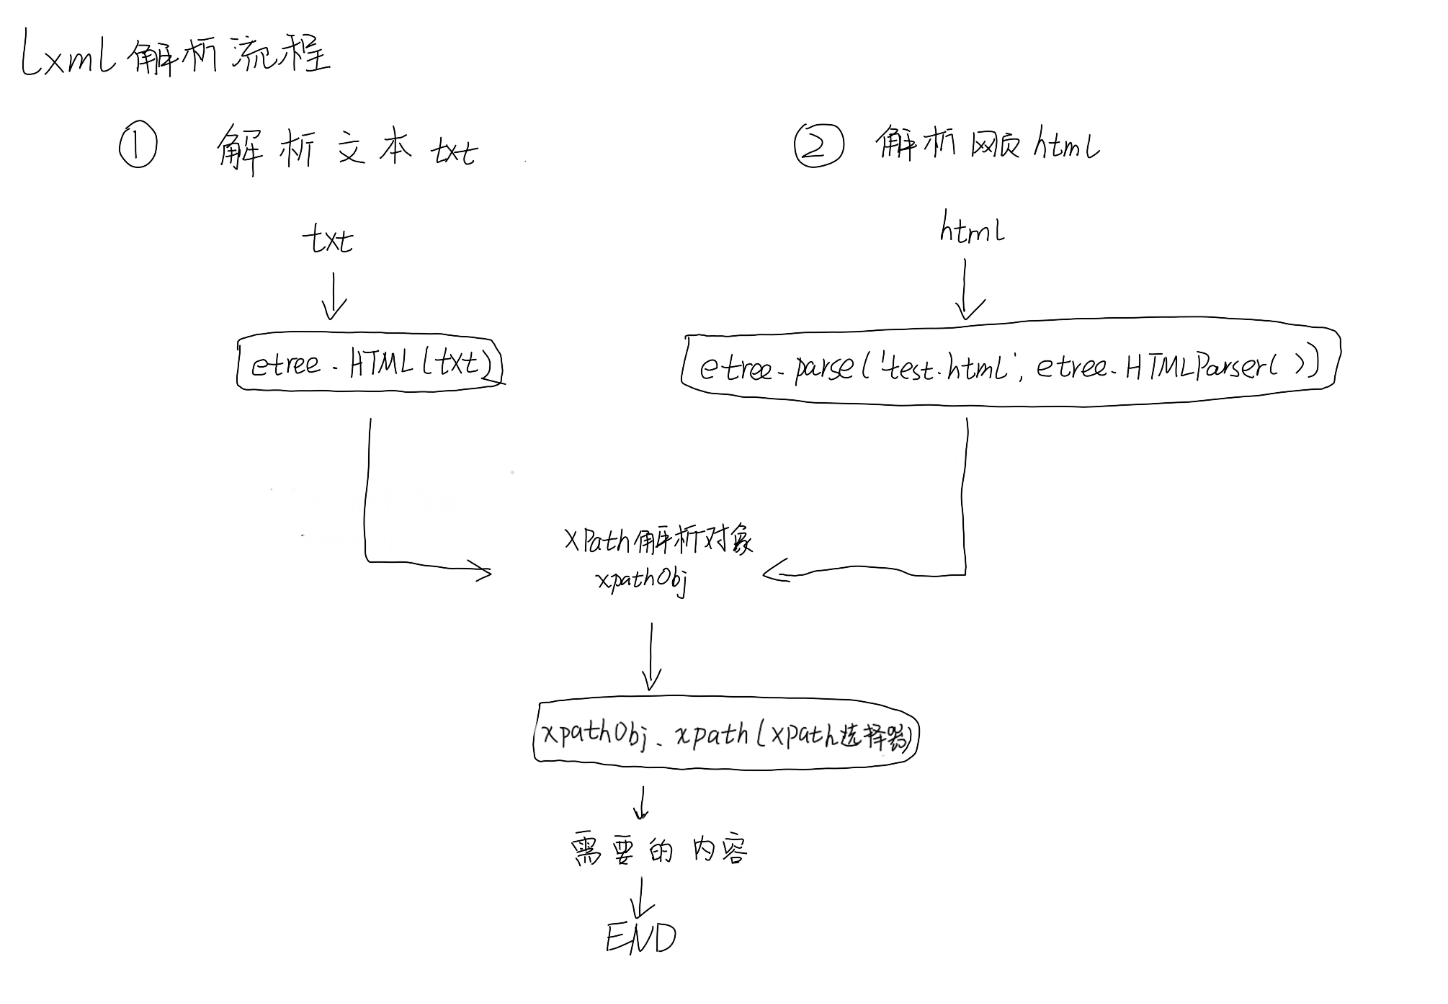 lxml解析流程
① 解析文本txt
② 解析网页html
txt
html
etree.HTML(txt)
etree.parse('test.html', etree.HTMLParser())
XPath解析对象
xpathObj
xpathObj.xpath(xpath选择器)
需要的内容
END